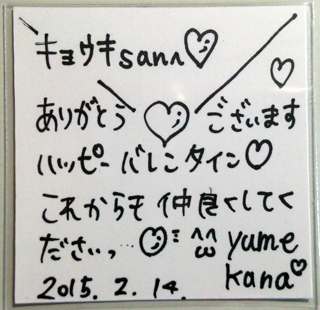 キョウキsanへ♡
ありがとう♡ございます
ハッピーバレンタイン♡
これからも仲良くしてく
ださいっ… ^^ yume
2015. 2. 14. kana♡